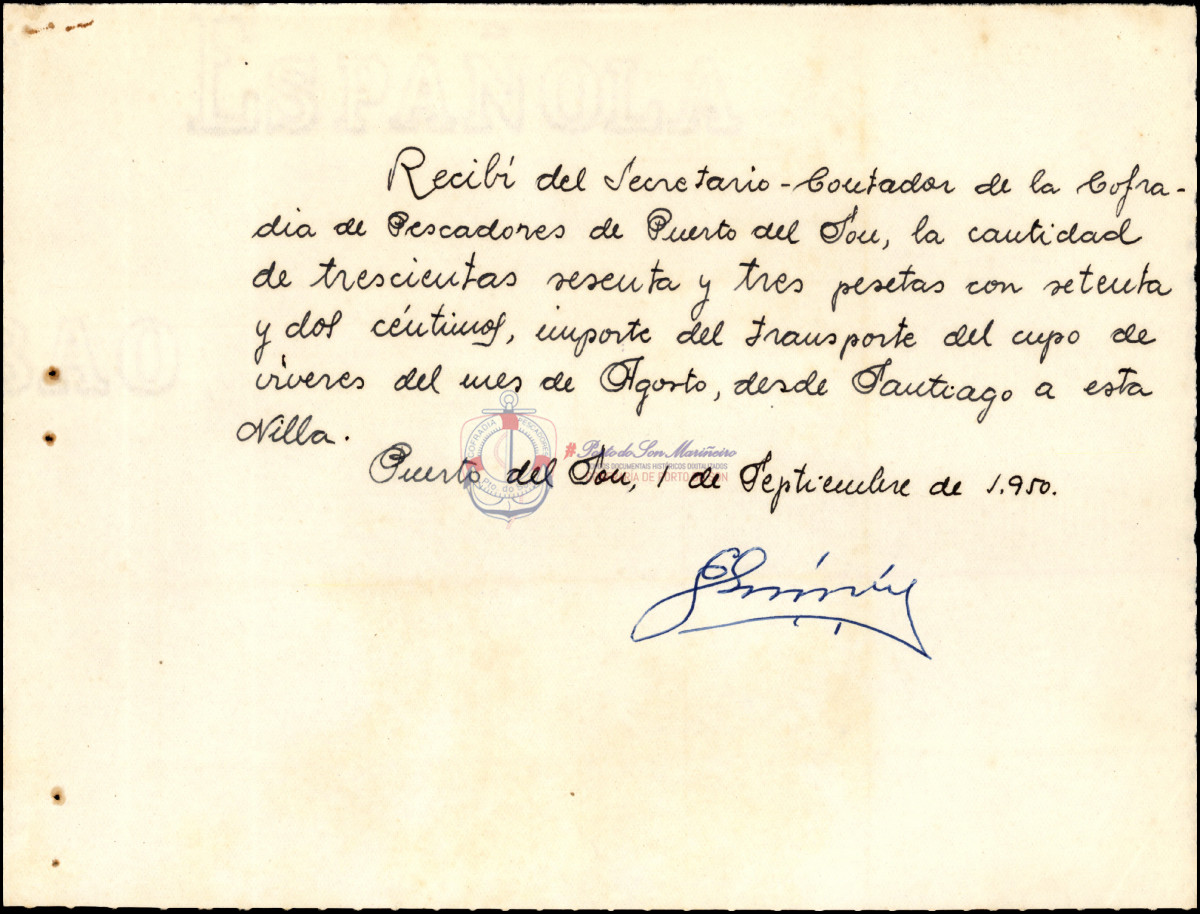 ESPAÑOLA
Recibí del Secretario-Contador de la Cofra-
dia de Pescadores de Puerto del Son, la cantidad
de trescientas sesenta y tres pesetas con setenta
y dos céntimos, importe del transporte del cupo de
víveres del mes de Agosto, desde Santiago a esta
Villa.
COFRADIA PESCADORES
Pto. do Son
#Porto do Son Mariñeiro
DOCUMENTAIS HISTÓRICOS DIXITALIZADOS
DE PORTO DO SON
Puerto del Son, 1 de Septiembre de 1.950.